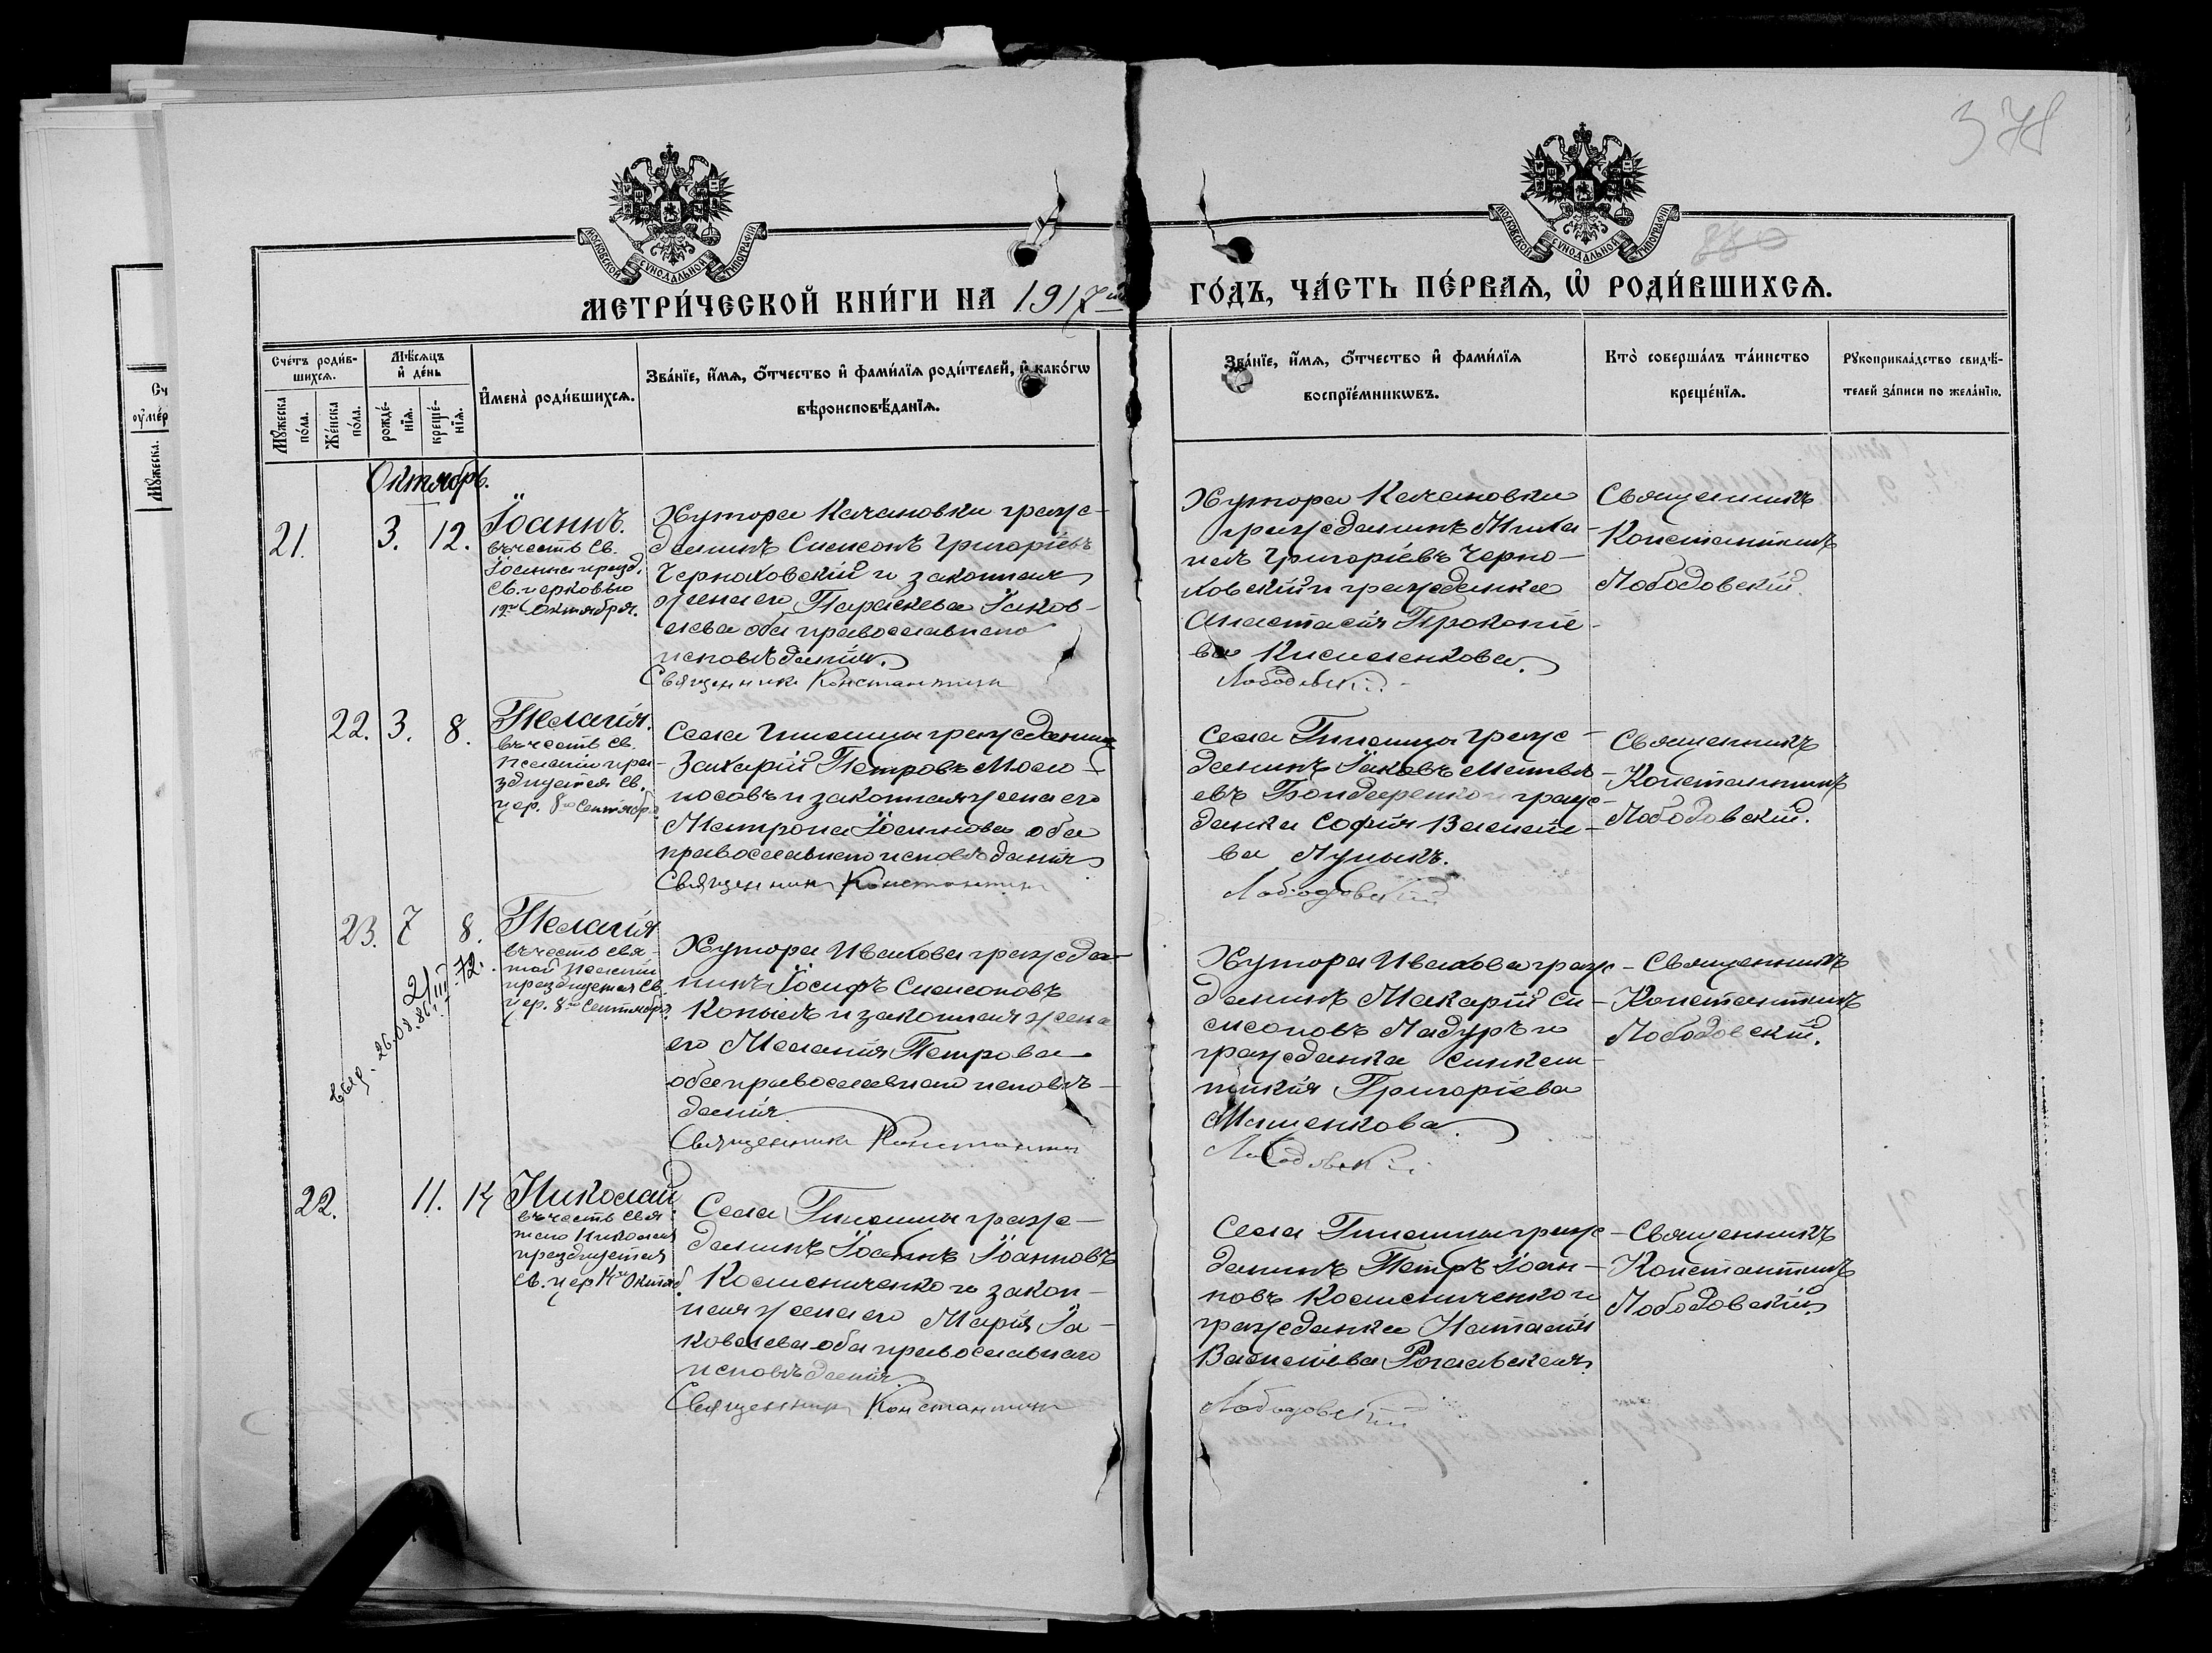 378
880
МОСКОВСКОЙ СѴНОДАЛЬНОЙ ТИПОГРАФІИ
МОСКОВСКОЙ СѴНОДАЛЬНОЙ ТИПОГРАФІИ
МЕТРИ́ЧЕСКОЙ КНИ́ГИ НА 1917й
ГО́ДЪ, ЧА́СТЬ ПЕ́РВАѦ, Ѽ РОДИ́ВШИХСѦ.
Сче́тъ роди́в-
шихсѧ.
Мꙋ́жеска по́ла.
Же́нска по́ла.
Мѣ́сѧцъ и҆ де́нь
рожде́-
нїѧ.
креще́-
нїѧ.
И҆мена̀ роди́вшихсѧ.
Зва́нїе, и҆́мѧ, ѻ҆́тчество и҆ фами́лїѧ роди́телей, и҆ како́гѡ
вѣроисповѣ́данїѧ.
Зва́нїе, и҆́мѧ, ѻ҆́тчество и҆ фами́лїѧ
воспрїе́мникѡвъ.
Кто̀ соверша́лъ та́инство
креще́нїѧ.
Рꙋкоприкла́дство свидѣ́-
телей за́писи по жела́нїю.
Сч
ᲂумер
Мꙋ́жеска.
Октябрь.
21.
3.
12.
Іоаннъ.
въ честь Св.
Іоанна празд.
Св. церковью
12го Октября.
Хутора Качановки граж-
данинъ Симеонъ Григоріевъ
Черноховскій и законная
жена его Параскева Іаков-
лева оба православнаго
исповѣданія.
Священникъ Константинъ
Хутора Качановки
гражданинъ Миха-
илъ Григоріевъ Черно-
ховскій и гражданка
Анастасія Прокопіе-
ва
Лободовскій.
Священникъ
Константинъ
Лободовскій.
22.
3.
8.
Пелагія.
въ честь Св.
Пелагіи пра-
зднуется Св.
цер. 8го Сентябр.
Села Гнилицы гражданинъ
Захарій Петровъ
и законная жена его
Матрона Іоаннова оба
православнаго исповѣданія
Священникъ Константинъ
Села Гнилицы граж-
данинъ Іаковъ Матвѣ-
евъ Бондаренко и граж-
данка Софія Василіе-
ва
Лободовскій
Священникъ
Константинъ
Лободовскій.
23.
7
8.
Пелагія
въ честь Свя-
той Пелагіи
празднуется Св.
цер. 8го Сентября.
26.08.86г.
Хутора Ивахова гражда-
нинъ Іосифъ Симеоновъ
Копылъ и законная жена
его Меланія Петрова
оба православнаго исповѣ-
данія
Священникъ Константинъ
Хутора Ивахова граж-
данинъ Макарій Си-
меоновъ Мадуръ и
гражданка Синкли-
тикія Григоріева
Мишенкова.
Лободовскій
Священникъ
Константинъ
Лободовскій.
22.
11.
14
Николай
въ честь Свя-
таго Николая
празднуется
Св. цер 14го Октяб.
Села Гнилицы граж-
данинъ Іоаннъ Іоанновъ
Колесниченко и закон-
ная жена его Марія Іа-
ковлева оба православнаго
исповѣданія.
Священникъ Константинъ
Села Гнилицы граж-
данинъ Петръ Іоан-
новъ Колесниченко и
гражданка Наталія
Василіева Рогальская.
Лободовскій
Священникъ
Константинъ
Лободовскій